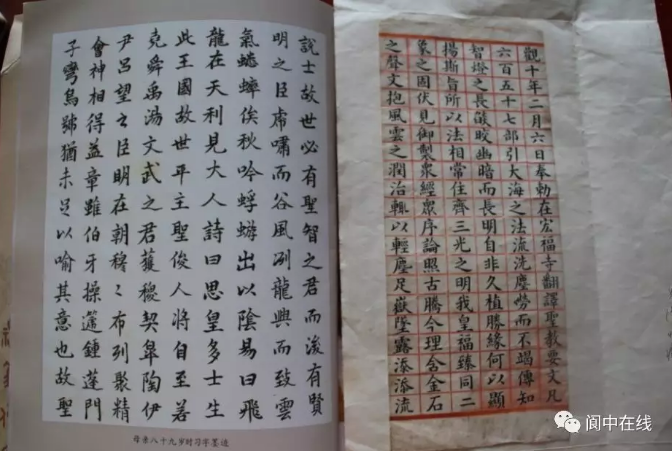 觀十年二月六日奉勅在宏福寺翻譯聖教要文凡
六百五十七部引大海之法流洗塵勞而不竭傳知
智燈之長燄皎幽暗而長明自非久植勝緣何以顯
揚斯旨所以法相常住齊三光之明我皇福臻同二
象之固伏見御製衆經眾序論照古騰今理含金石
之聲文抱風雲之潤治輒以輕塵足嶽墜露添添流
說士故世必有聖智之君而後有賢
明之臣虎嘯而谷風冽龍興而致雲
氣蟋蟀俟秋吟蜉蝣出以陰易曰飛
龍在天利見大人詩曰思皇多士生
此王國故世平主聖俊人將自至若
堯舜禹湯文武之君獲稷契皋陶伊
尹呂望之臣明在朝穆〻布列聚精
會神相得益章雖伯牙操遞鍾蓬門
子彎烏號猶未足以喻其意也故聖
母亲八十九岁时习字墨迹
阆中在线